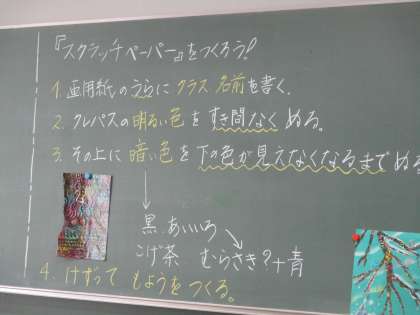 『スクラッチペーパー』をつくろう!
1. 画用紙のうらにクラス 名前を書く.
2. クレパスの明るい色をすき間なくぬる。
3. その上に暗い色を下の色が見えなくなるまでぬる
黒、あいいろ
こげ茶 むらさき?+青
4. けずって もようをつくる。